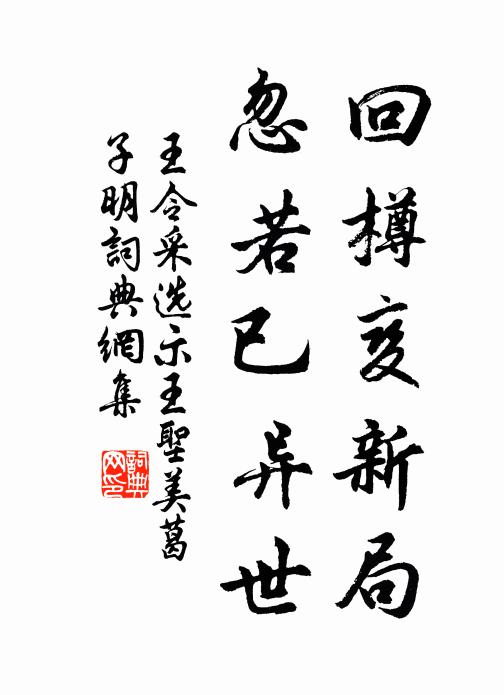 回樽变新局
忽若已异世
王令采选示王聖美葛
子明詞典網集
詞典
网印